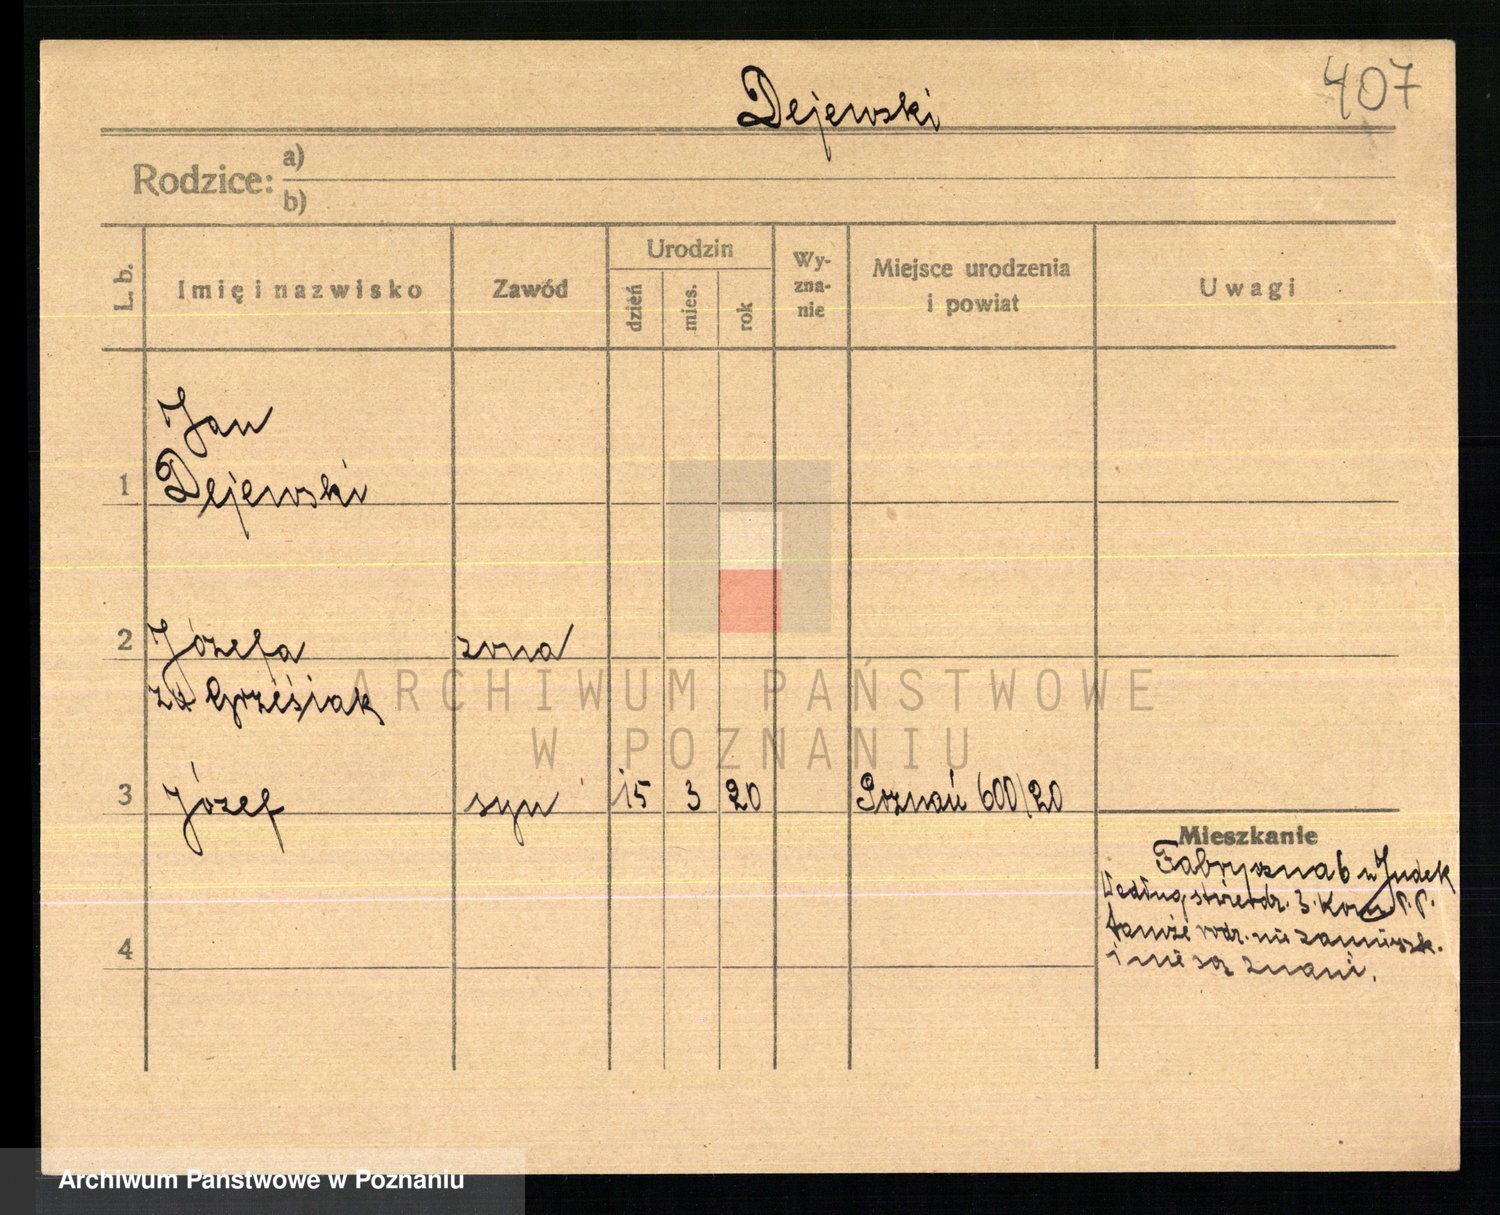 407
Dejewski
Rodzice: a)
b)
L. b.
Imię i nazwisko
Zawód
Urodzin
dzień
mies.
rok
Wy-
zna-
nie
Miejsce urodzenia
i powiat
Uwagi
Jan
1 Dejewski
2 Józefa żona
zd Grześiak
ARCHIWUM PAŃSTWOWE
W POZNANIU
3 Józef syn 15 3 20 Poznań 600/20
Mieszkanie
Fabryczna 6 u Judek
Według stwierdz. 3. Kom P.P.
tamże rodz. nie zamieszk.
i nie są znani.
4
Archiwum Państwowe w Poznaniu